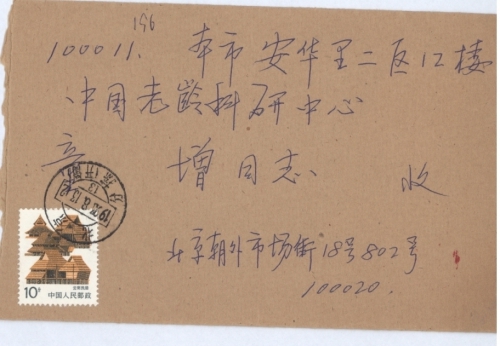 196
100011. 本市安华里二区12楼
中国老龄科研中心
章 增同志 收
北京朝外市场街18号802号
100020.
北京
10分
中国人民邮政